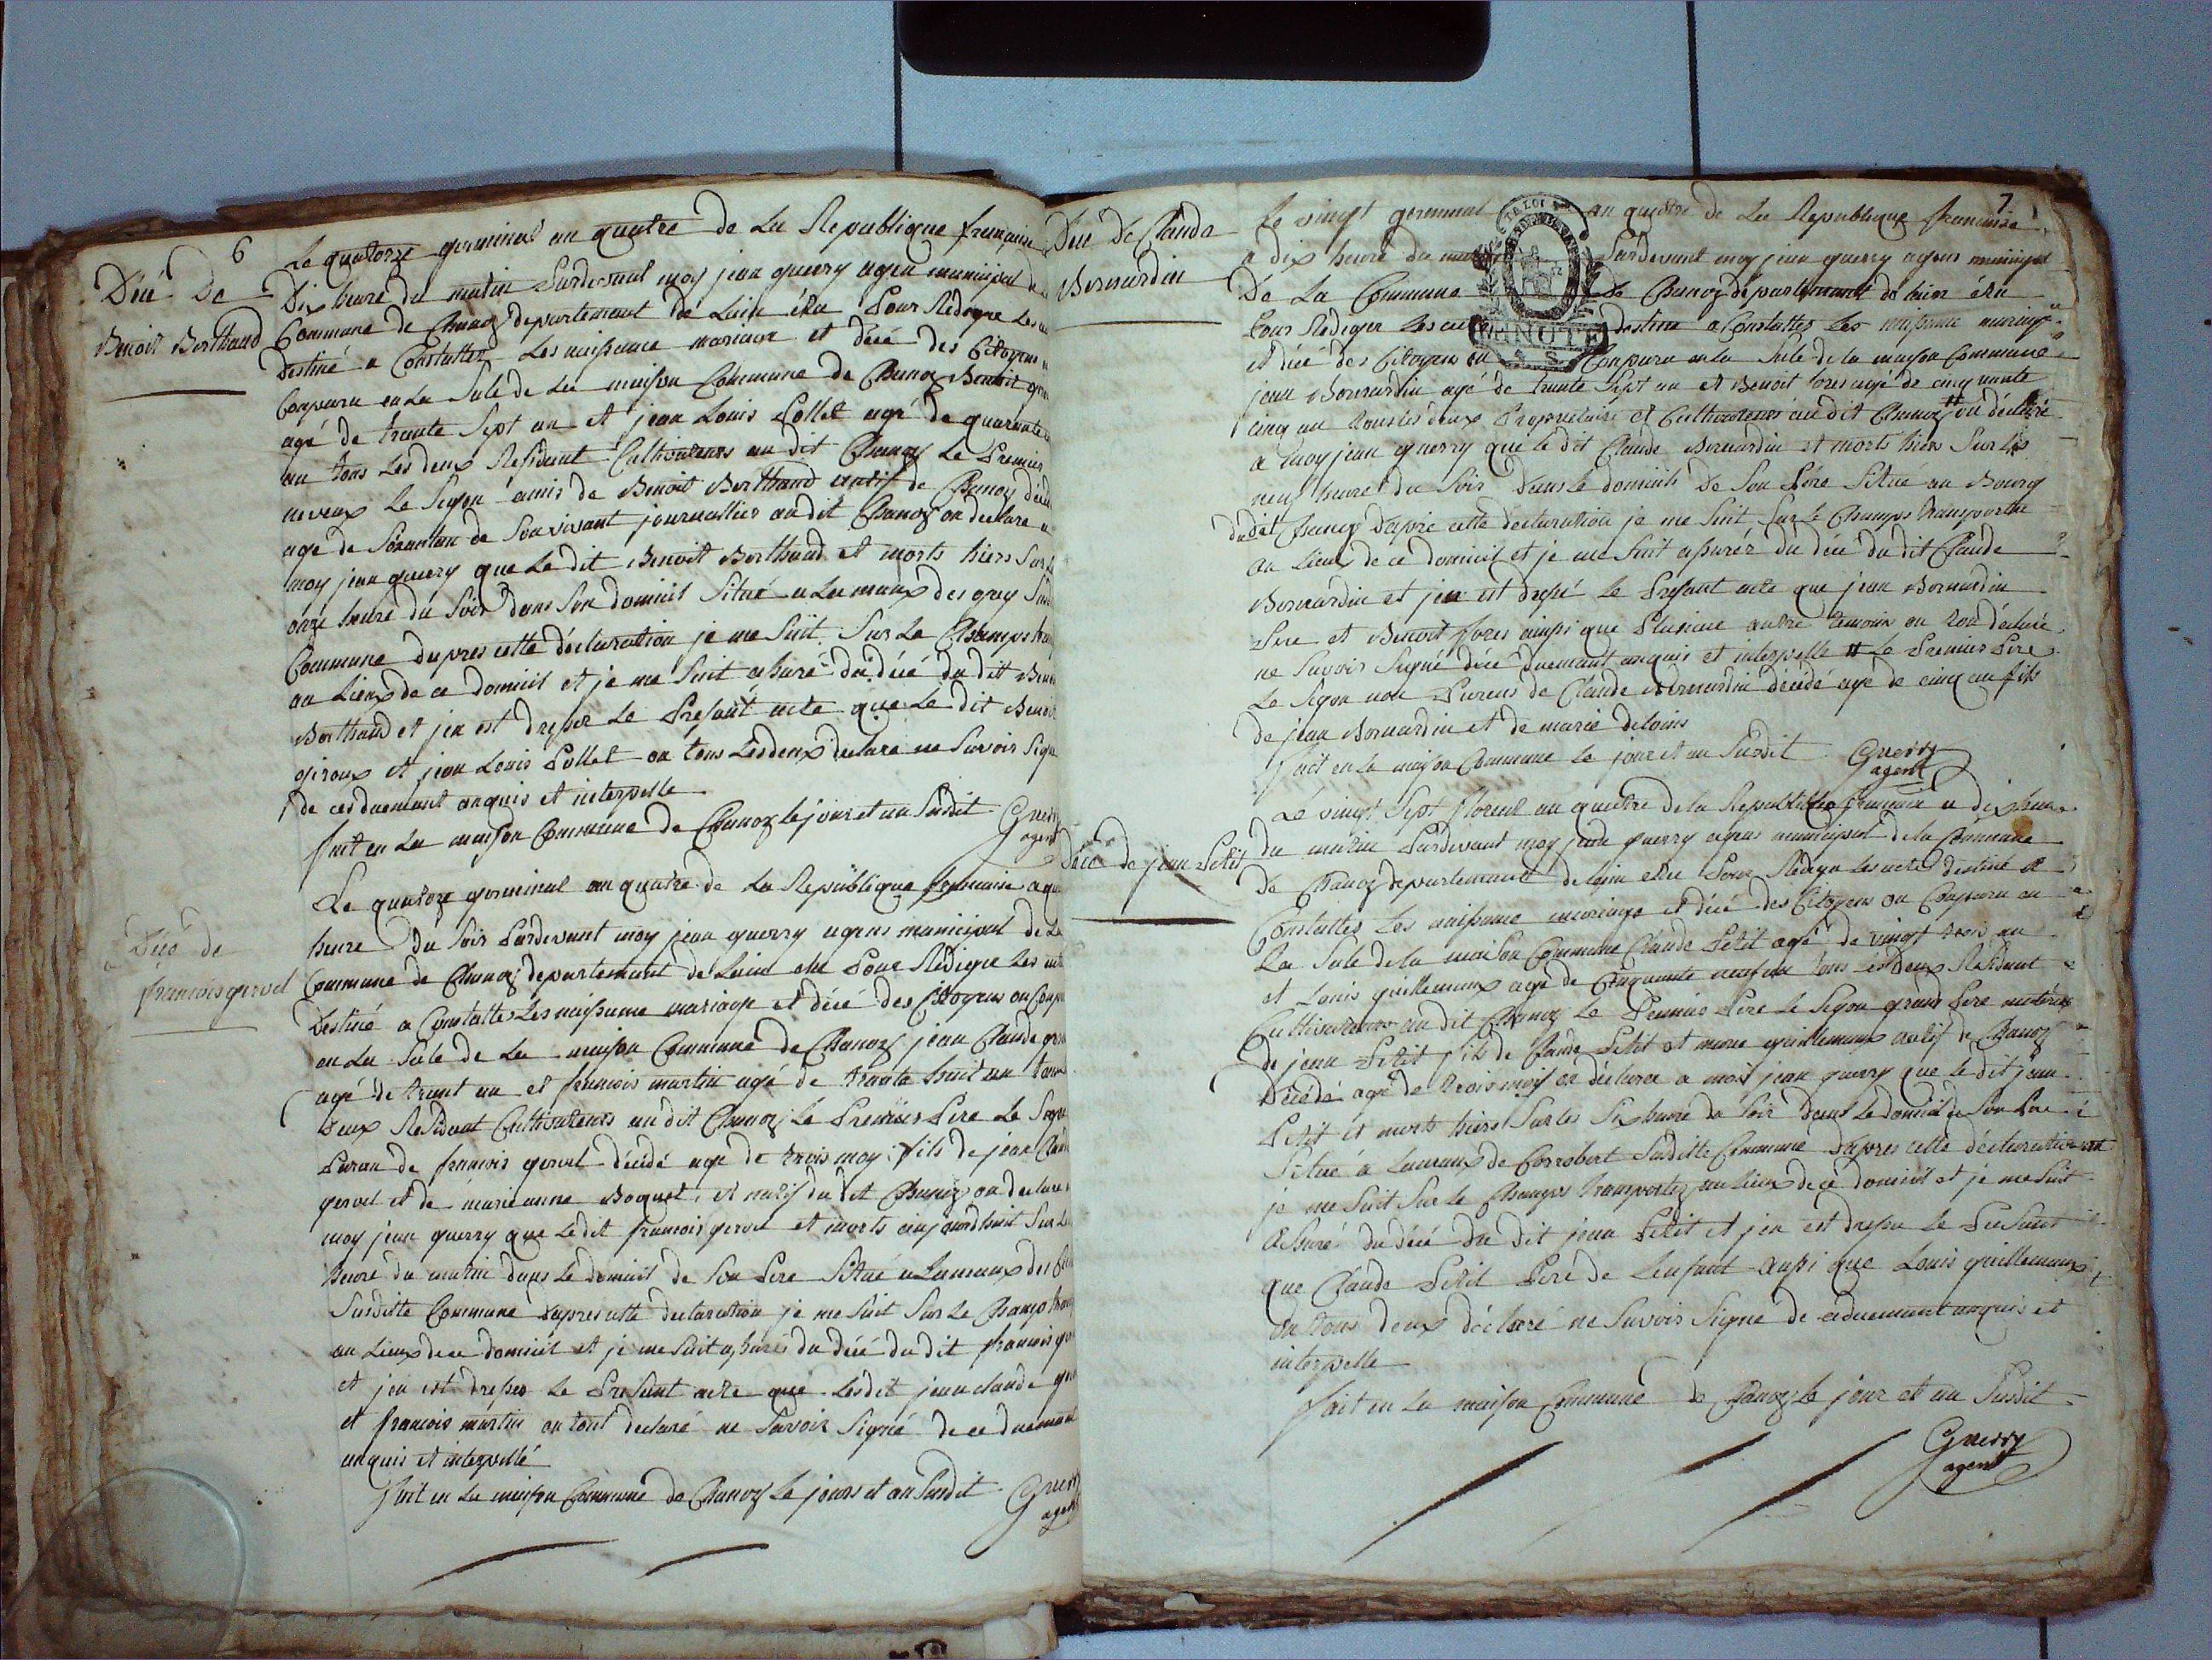 6
Décé De
Benoit Berthaud
Le quatorze germinal an quatre de La Republique francaise
Dix heure du matin Pardevant moy jean guerry agen municipal de
Commune de Chanoz departement de Lain élu Pour Rédiger Les
destiné a Constatter Les naissance mariage et décé des Citoyens
Conparu en La Sale de La maison Commune de Chanoz Benoit
agé de trante Sept an et jean Louis Pollet agé de quarante
an tous Les deux Residant Cultivateurs au dit Chanoz Le Premier
neveux Le Segon amis de Benoit Berthaud natif de Chanoz
agé de de Son vivant journallier audit Chanoz on declare
moy jean guerry que Le dit Benoit Berthaud et morts hiers Sur
onze heure du Soir dans Son domicil Situé a Lamaux des
Commune dapres cette déclaration je me Suit Sur Le Champs
au Lieux de ce domicil et je me Suit assuré du décé du dit
Berthaud et jen est dressé Le Presant acte que Le dit Benoit
giroux et jean Louis Pollet on tous Les deux declaré ne Savoir
de ce duemant anquis et interpelle
fait en La maison Commune de Chanoz le jour et an Susdit
Guerry
agent
Décé de
francois gervet
Le quatorze germinal an quatre de La Republique francaise a
heure du Soir Pardevant moy jean guerry agens municipal de La
Commune de Chanoz departement de Lain élu Pour Rédiger Les
Destiné a Constatter Les naissance mariage et décé des Citoyens on
en La Sale de La maison Commune de Chanoz jean Claude
agé de trant an et francois martin agé de trante huit an tous
deux Residant Cultivateurs au dit Chanoz Le Premier Pere Le
Paran de francois gervet décédé agé de trois moy fils de jean
gervet et de marieanne Boquet et natif du dit Chanoz on declare
moy jean guerry que Le dit francois gervet et morts aujourdhuit Sur
heure du matin dans Le domicil de Son Pere Situé a Lamaux des
Susditte Commune dapres cette declaration je me Suit Sur Le Champs
au Lieux de ce domicil et je me Suit assuré du décé du dit francois
et jen est dressé Le Presant acte que Lesdit jean claude
et francois martin on tout declaré ne Savoir Signé de ce duemant
anquis et interpellé
fait en La maison Commune de Chanoz Le jours et an Susdit
Guerry
agent
7
Décé de Claude
Bernardin
Le vingt germinal an quatre de La Republique francaise
a dix heure du matin Pardevant moy jean guerry agens municipal
De La Commune de Chanoz departemant de élu
Pour Rediger Les destiné a Constatter Les naissance mariage
et décé des Citoyens on Conparu en La Sale de la maison Commune
jean Bernardin agé de trante Sept an et Benoit fores agé de cinquante
cinq an tous les deux Propriétaire et Cultivateurs audit Chanoz # on déclaré
a moy jean guerry que le dit Claude Bernardin et morts hier Sur les
neuf heure du Soir dans le domicils De Son Pére Situé au Bourg
dudit Chanoz dapré cette declaration je me Suit Sur le Champs transporter
au Lieux de ce domicil et je me Suit assurér du décé du dit Claude
Bernardin et jen est dressé le Presant acte que jean Bernardin
Pere et Benoit fores ainssi que Plusieur autre temoin on tous déclaré
ne Savoir Signé dece duemant anquis et interpelle # Le Premier Pere
Le Segon non Parens de Claude Bernardin décédé agé de cinq an fils
de jean Bernardin et de marie
fait en la maison Commune le jour et an Susdit
Guerry
agent
LA LOI
MINUTE
Décé de jean Petit
Le vingt Sept floreal an quatre de la Republique francaise a dix heure
du matin Pardevant moy jean guerry agens municipal de la Commune
de Chanoz departemant de lain élu Pour Rediger les acte destiné a
Constatter Les naissance mariage et décé des Citoyens on Conparu en
La Sale de la maison Commune Claude Petit agé de vingt trois an
et Louis guillemaux agé de Cinquante neuf an tous les deux Residant
Cultivateurs au dit Chanoz Le Premier Pere le Segon grand Pere maternel
de jean Petit fils de Claude Petit et marie guillemaux natif de Chanoz
Décédé agé de trois moy on déclaré a moi jean guerry que le dit jean
Petit et morts hiers Sur les Six heure du Soir dans Le domicil de Son Pere
Situé a Lamaux de Corrobert Susditte Commune dapres cette déclaration
je me Suit Sur le Champs transportez au Lieux de ce domicil et je me Suit
assuré du décé du dit jean Petit et jen est dressé Le Presant
que Claude Petit Pere de Lenfant aussi que Louis guillemaux
on tous deux déclaré ne Savoir Signé de ce duemant anquis et
interpelle
fait en La maison Commune de Chanoz Le jour et an Susdit
Guerry
agent